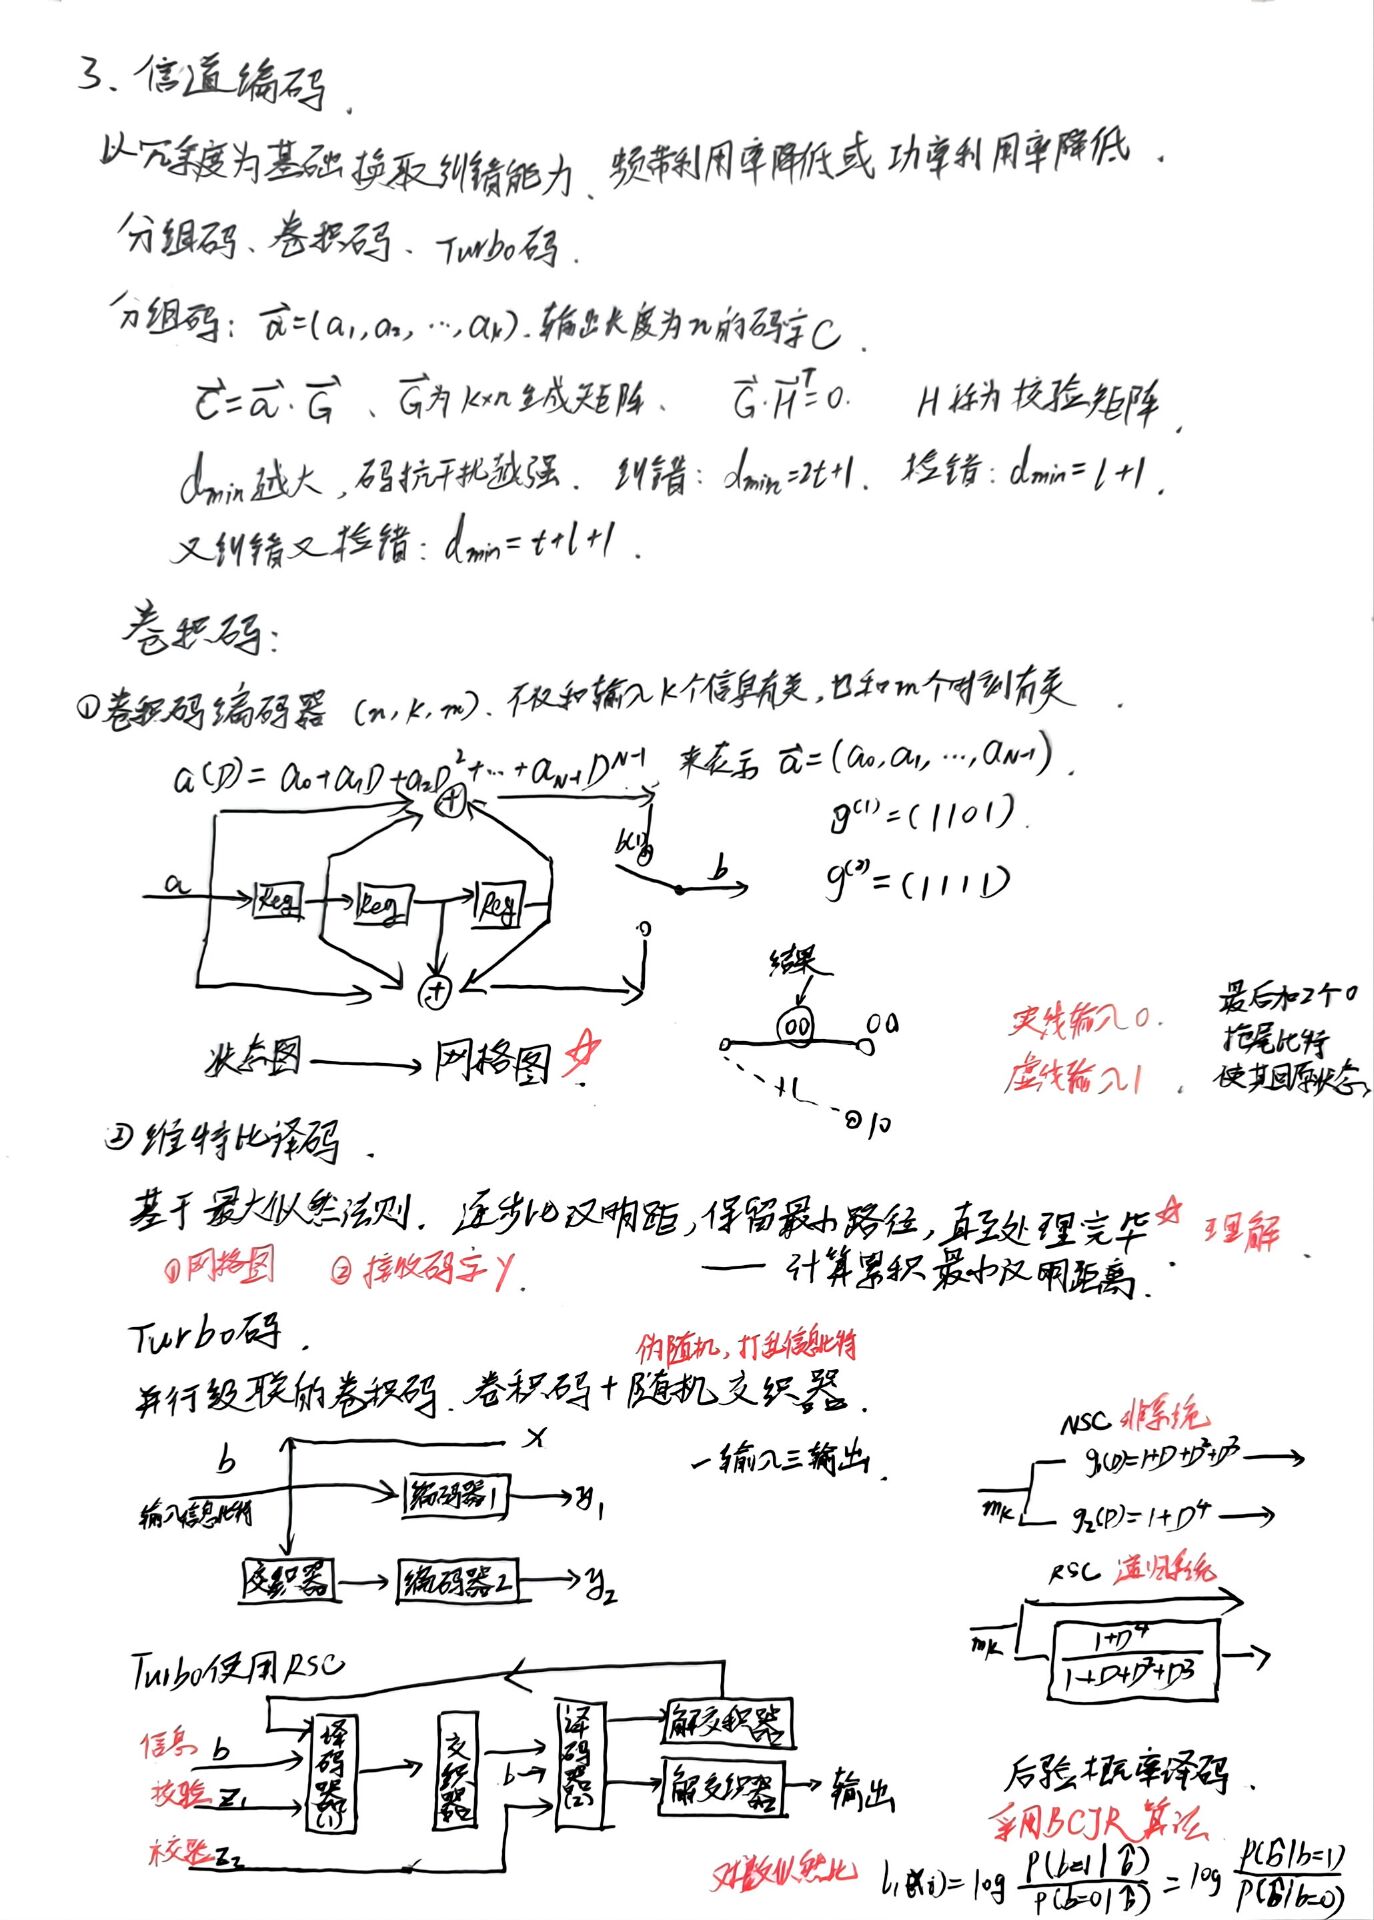 3、信道编码.
以冗余度为基础换取纠错能力、频带利用率降低或功率利用率降低.
分组码、卷积码、Turbo码.
分组码: a⃗=(a₁,a₂,…,aₖ).输出长度为n的码字C.
C⃗=a⃗·G⃗、G⃗为k×n生成矩阵、 G⃗·H⃗ᵀ=0. H称为校验矩阵.
dmin越大,码抗干扰越强. 纠错: dmin=2t+1. 检错: dmin=l+1.
又纠错又检错: dmin=t+l+1.
卷积码:
①卷积码编码器 (n,k,m).不仅和输入k个信息有关,也和m个时刻有关.
a(D)=a₀+a₁D+a₂D²+…+a_{N-1}D^{N-1} 来表示 a⃗=(a₀,a₁,…,a_{N-1}).
g⁽¹⁾=(1101).
g⁽²⁾=(1111)
a
Reg
Reg
Reg
+
+
b
结果
00
00
11
10
实线输入0.
虚线输入1.
最后加2个0
拖尾比特
使其回原状态,
状态图→网格图☆.
②维特比译码.
基于最大似然法则. 逐步比汉明距,保留最小路径,直至处理完毕☆ 理解.
①网格图 ②接收码字y.
—— 计算累积最小汉明距离.
Turbo码.
伪随机,打乱信息比特
并行级联的卷积码.卷积码+随机交织器.
一输入三输出.
b
x
输入信息比特
编码器1
y₁
交织器
编码器2
y₂
NSC 非系统
mₖ
g₁(D)=1+D+D²+D³
g₂(D)=1+D⁴
RSC 递归系统
mₖ
1+D⁴
1+D+D²+D³
Turbo使用RSC
信息 b
校验 z₁
校验 z₂
译码器(1)
交织器
b
译码器(2)
解交积器
解交织器
输出
后验概率译码.
采用BCJR算法
对数似然比
=log P(b=1|b̂)/P(b=0|b̂)=log P(b̂|b=1)/P(b̂|b=0)